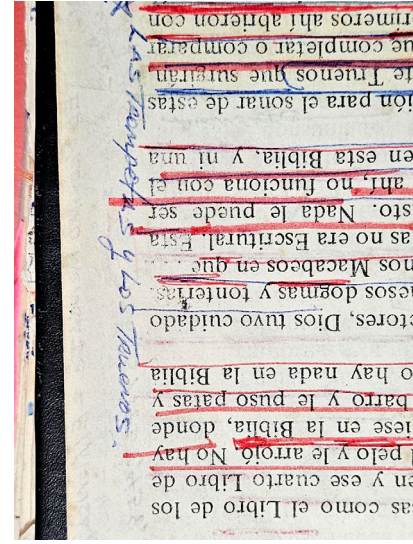 as como el Libro de los
en y ese cuarto Libro de
l pelo y le arrojó. No hay
iese en la Biblia, donde
barro y le puso patas y
o hay nada en la Biblia
ctores, Dios tuvo cuidado
esos dogmas y tonterías.
nos Macabeos en que . . .
as no era Escritural. Esta
sto. Nada le puede ser
ahí, no funciona con el
en esta Biblia, y ni una
ión para el sonar de estas
e Truenos que surgirán
ue completar o comparar
rimeros ahí abrieron con
Las Trompetas y Los Truenos.